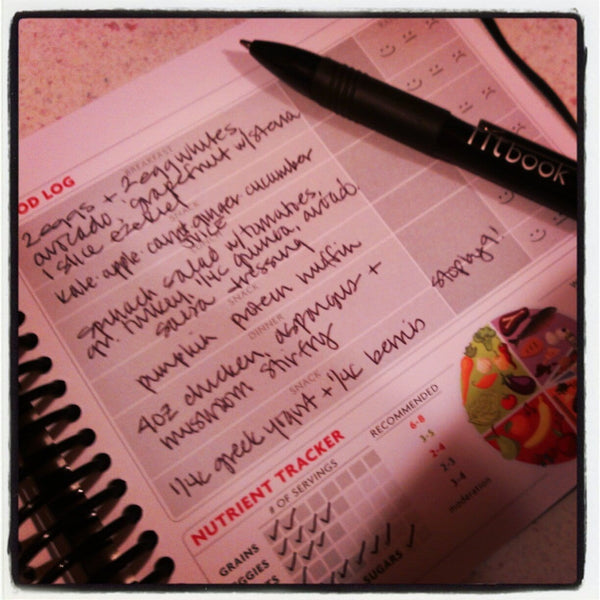 OD LOG
BREAKFAST
2 eggs + 2 egg whites,
avocado, grapefruit w/stevia
1 slice ezekiel
SNACK
kale·apple·carrot·ginger cucumber
juice
spinach salad w/tomatoes,
gr. turkey, 1/4c quinoa, avocad.
salsa dressing
SNACK
pumpkin protein muffin
DINNER
4oz chicken, asparagus +
mushroom stirfry
SNACK
stop by 9!
1/4c greek yogurt + 1/4c berries
fitbook
NUTRIENT TRACKER
# OF SERVINGS
RECOMMENDED
GRAINS
6-8
3-5
2-4
2-3
3-4
moderation
SUGARS